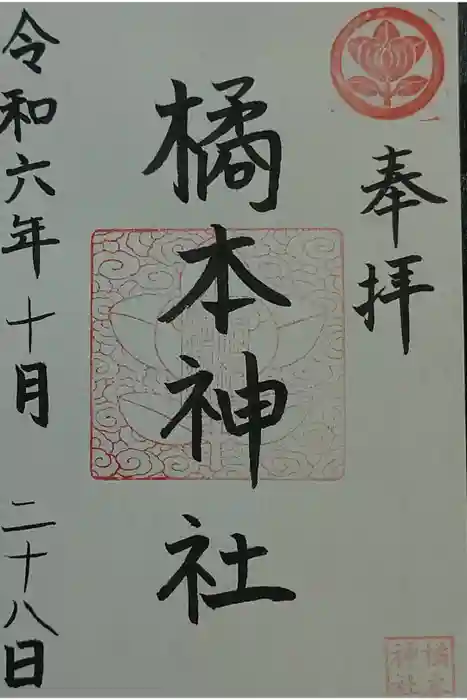 奉拝
橘本神社
令和六年十月二十八日
橘本
神社